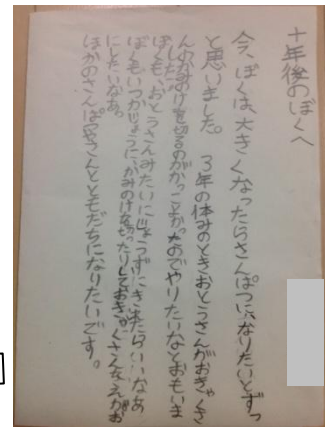 十年後のぼくへ
今、ぼくは、大きくなったらさんぱつやになりたいとずっ
と思いました。 3年の休みのときおとうさんがおきゃくさ
んのかみのけを切るのがかっこよかったのでやりたいなとおもいま
した。
ぼくも、おとうさんみたいにじょうずにきれたらいいなあ
ぼくもいつかじょうずに、かみのけをきったりしておきゃくさんをえがお
にしたいなあ。
ほかのさんぱつやさんとともだちになりたいです。